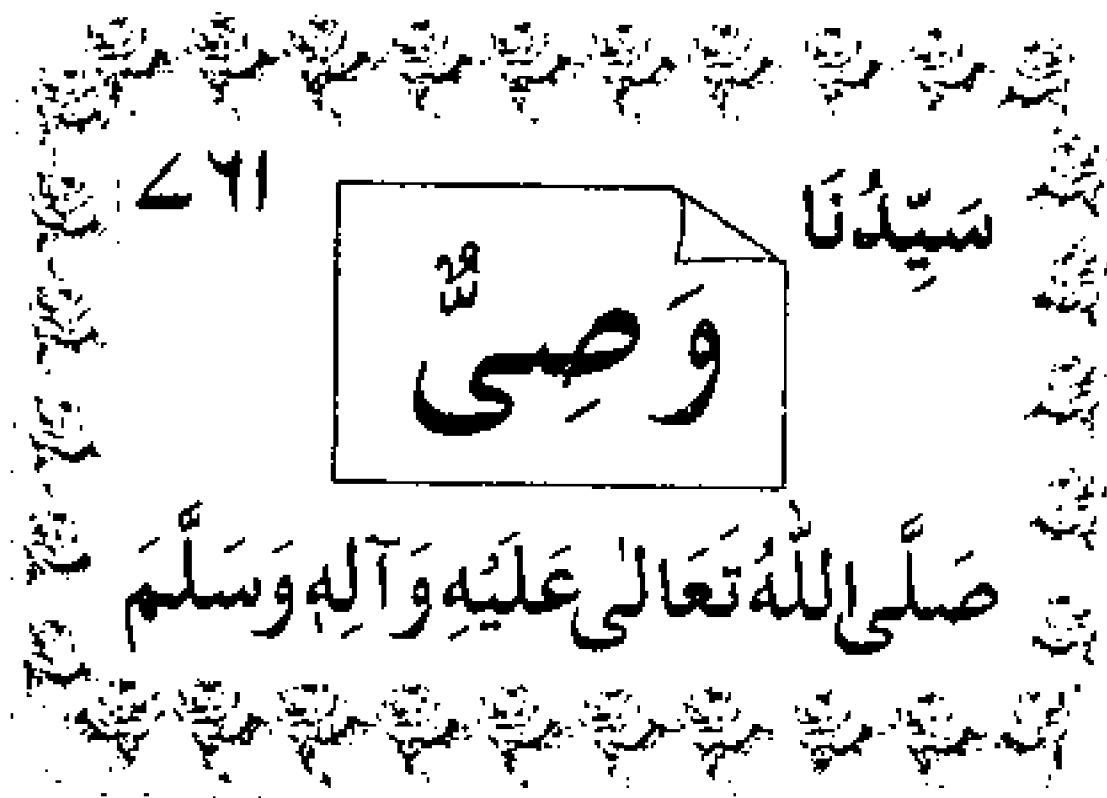 سَيِّدُنَا ۷۶۱
وَصِیٌّ
صَلَّی اللّٰهُ تَعَالٰی عَلَيْهِ وَآلِهٖ وَسَلَّمَ